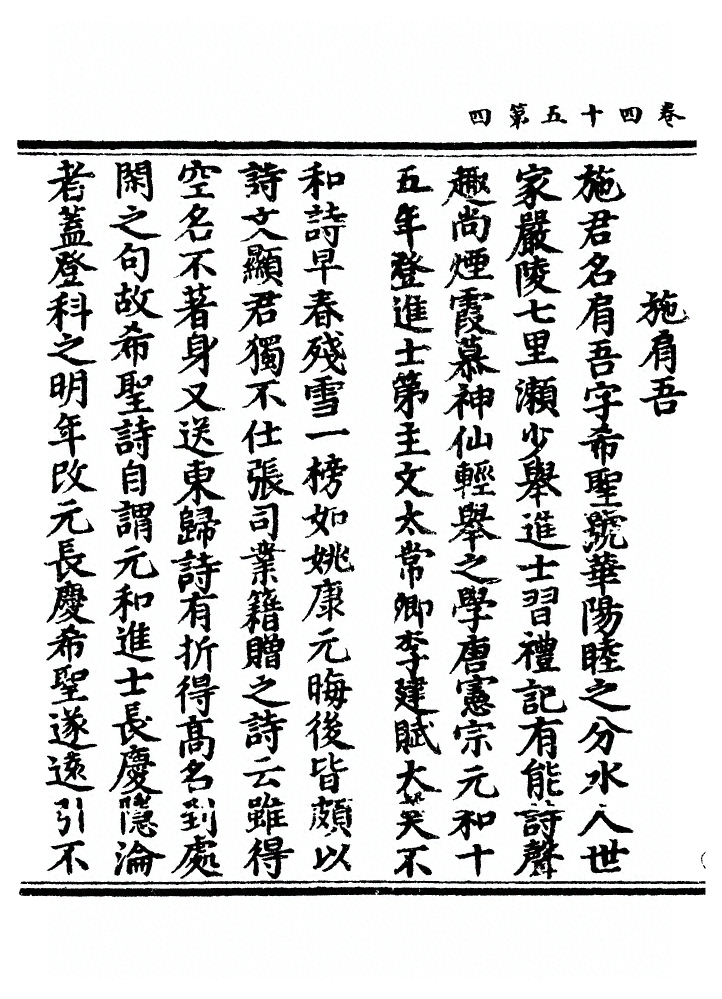 卷四十五第四
施肩吾
施君名肩吾字希聖號華陽睦之分水人世
家嚴陵七里瀨少舉進士習禮記有能詩聲
趣尚煙霞慕神仙輕舉之學唐憲宗元和十
五年登進士第主文太常卿李建賦太羹不
和詩早春殘雪一榜如姚康元晦後皆頗以
詩文顯君獨不仕張司業籍贈之詩云雖得
空名不著身又送東歸詩有折得高名到處
閑之句故希聖詩自謂元和進士長慶隱淪
者蓋登科之明年改元長慶希聖遂遠引不